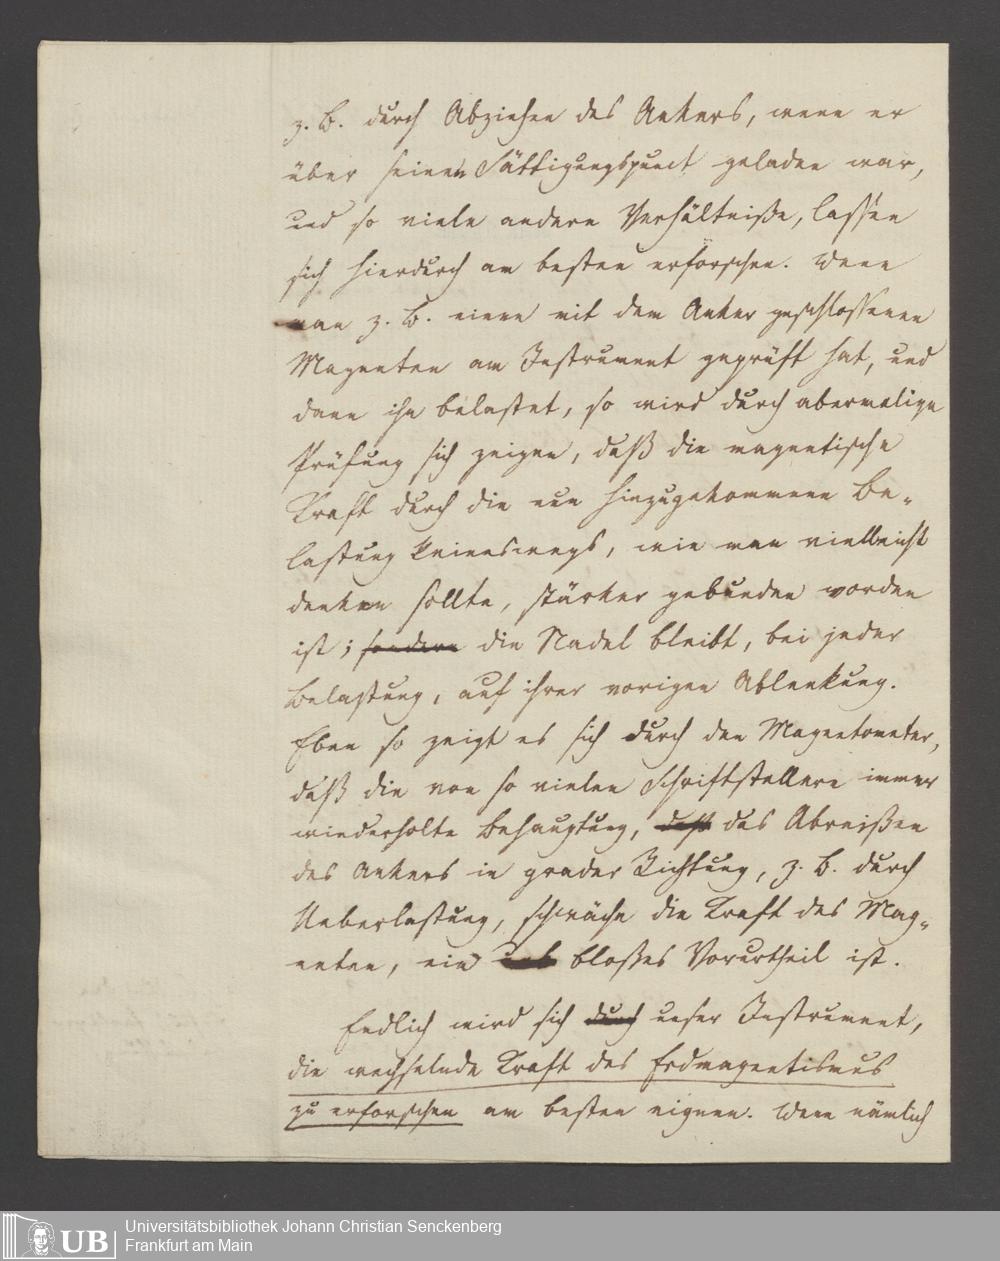 z. B. durch Abziehen des Ankers, wenn er
über seinen Sättigungspunct geladen war,
und so viele andere Verhältniße, lassen
sich hierdurch am besten erforschen. Wenn
man z. B. einen mit dem Anker geschlossenen
Magneten am Instrument geprüft hat, und
dann ihn belastet, so wird durch abermalige
Prüfung sich zeigen, daß die magnetische
Kraft durch die nun hinzugekommene Be„
lastung keinesweges, wie man vielleicht
denken sollte, stärker gebunden worden
ist; sondern die Nadel bleibt, bei jeder
Belastung, auf ihrer vorigen Ablenkung.
Eben so zeigt es sich durch den Magnetometer,
daß die von so vielen Schriftstellern immer
wiederholte Behauptung, daß das Abreißen
des Ankers in grader Richtung, z. B. durch
Ueberlastung, schwäche die Kraft des Mag„
neten, ein bloßes Vorurtheil ist.
Endlich wird sich durch unser Instrument,
die wechselnde Kraft des Erdmagnetismus
zu erforschen am besten eignen. Wenn nämlich
UB
Universitätsbibliothek Johann Christian Senckenberg
Frankfurt am Main